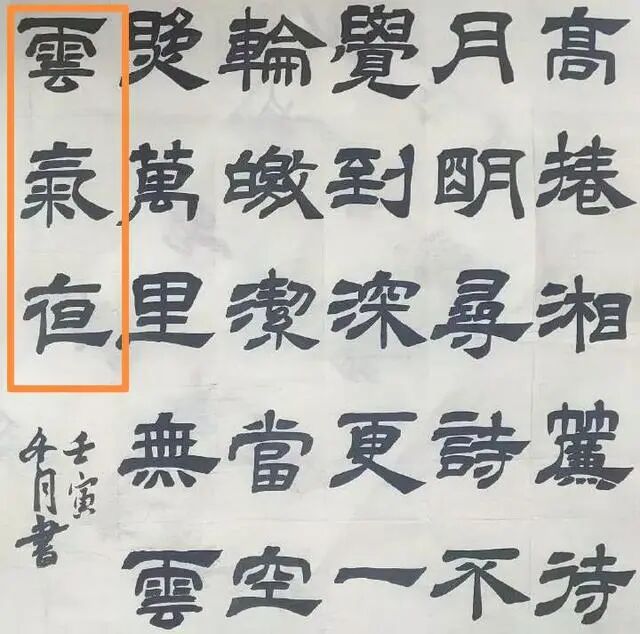 高捲湘簾待
月明尋詩不
覺到深更一
輪皦潔當空
照萬里無雲
雲氣夜
壬寅
冬月書